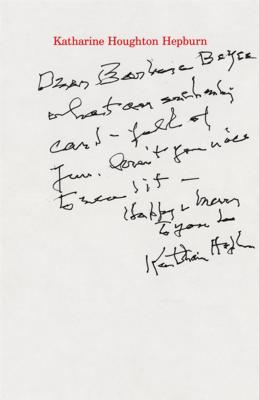 Katharine Houghton Hepburn
Dear Barbara
what an enchanting
card - full of
fun. Aren't you nice
to
Happy & Merry
to you too
Katharine Hepburn